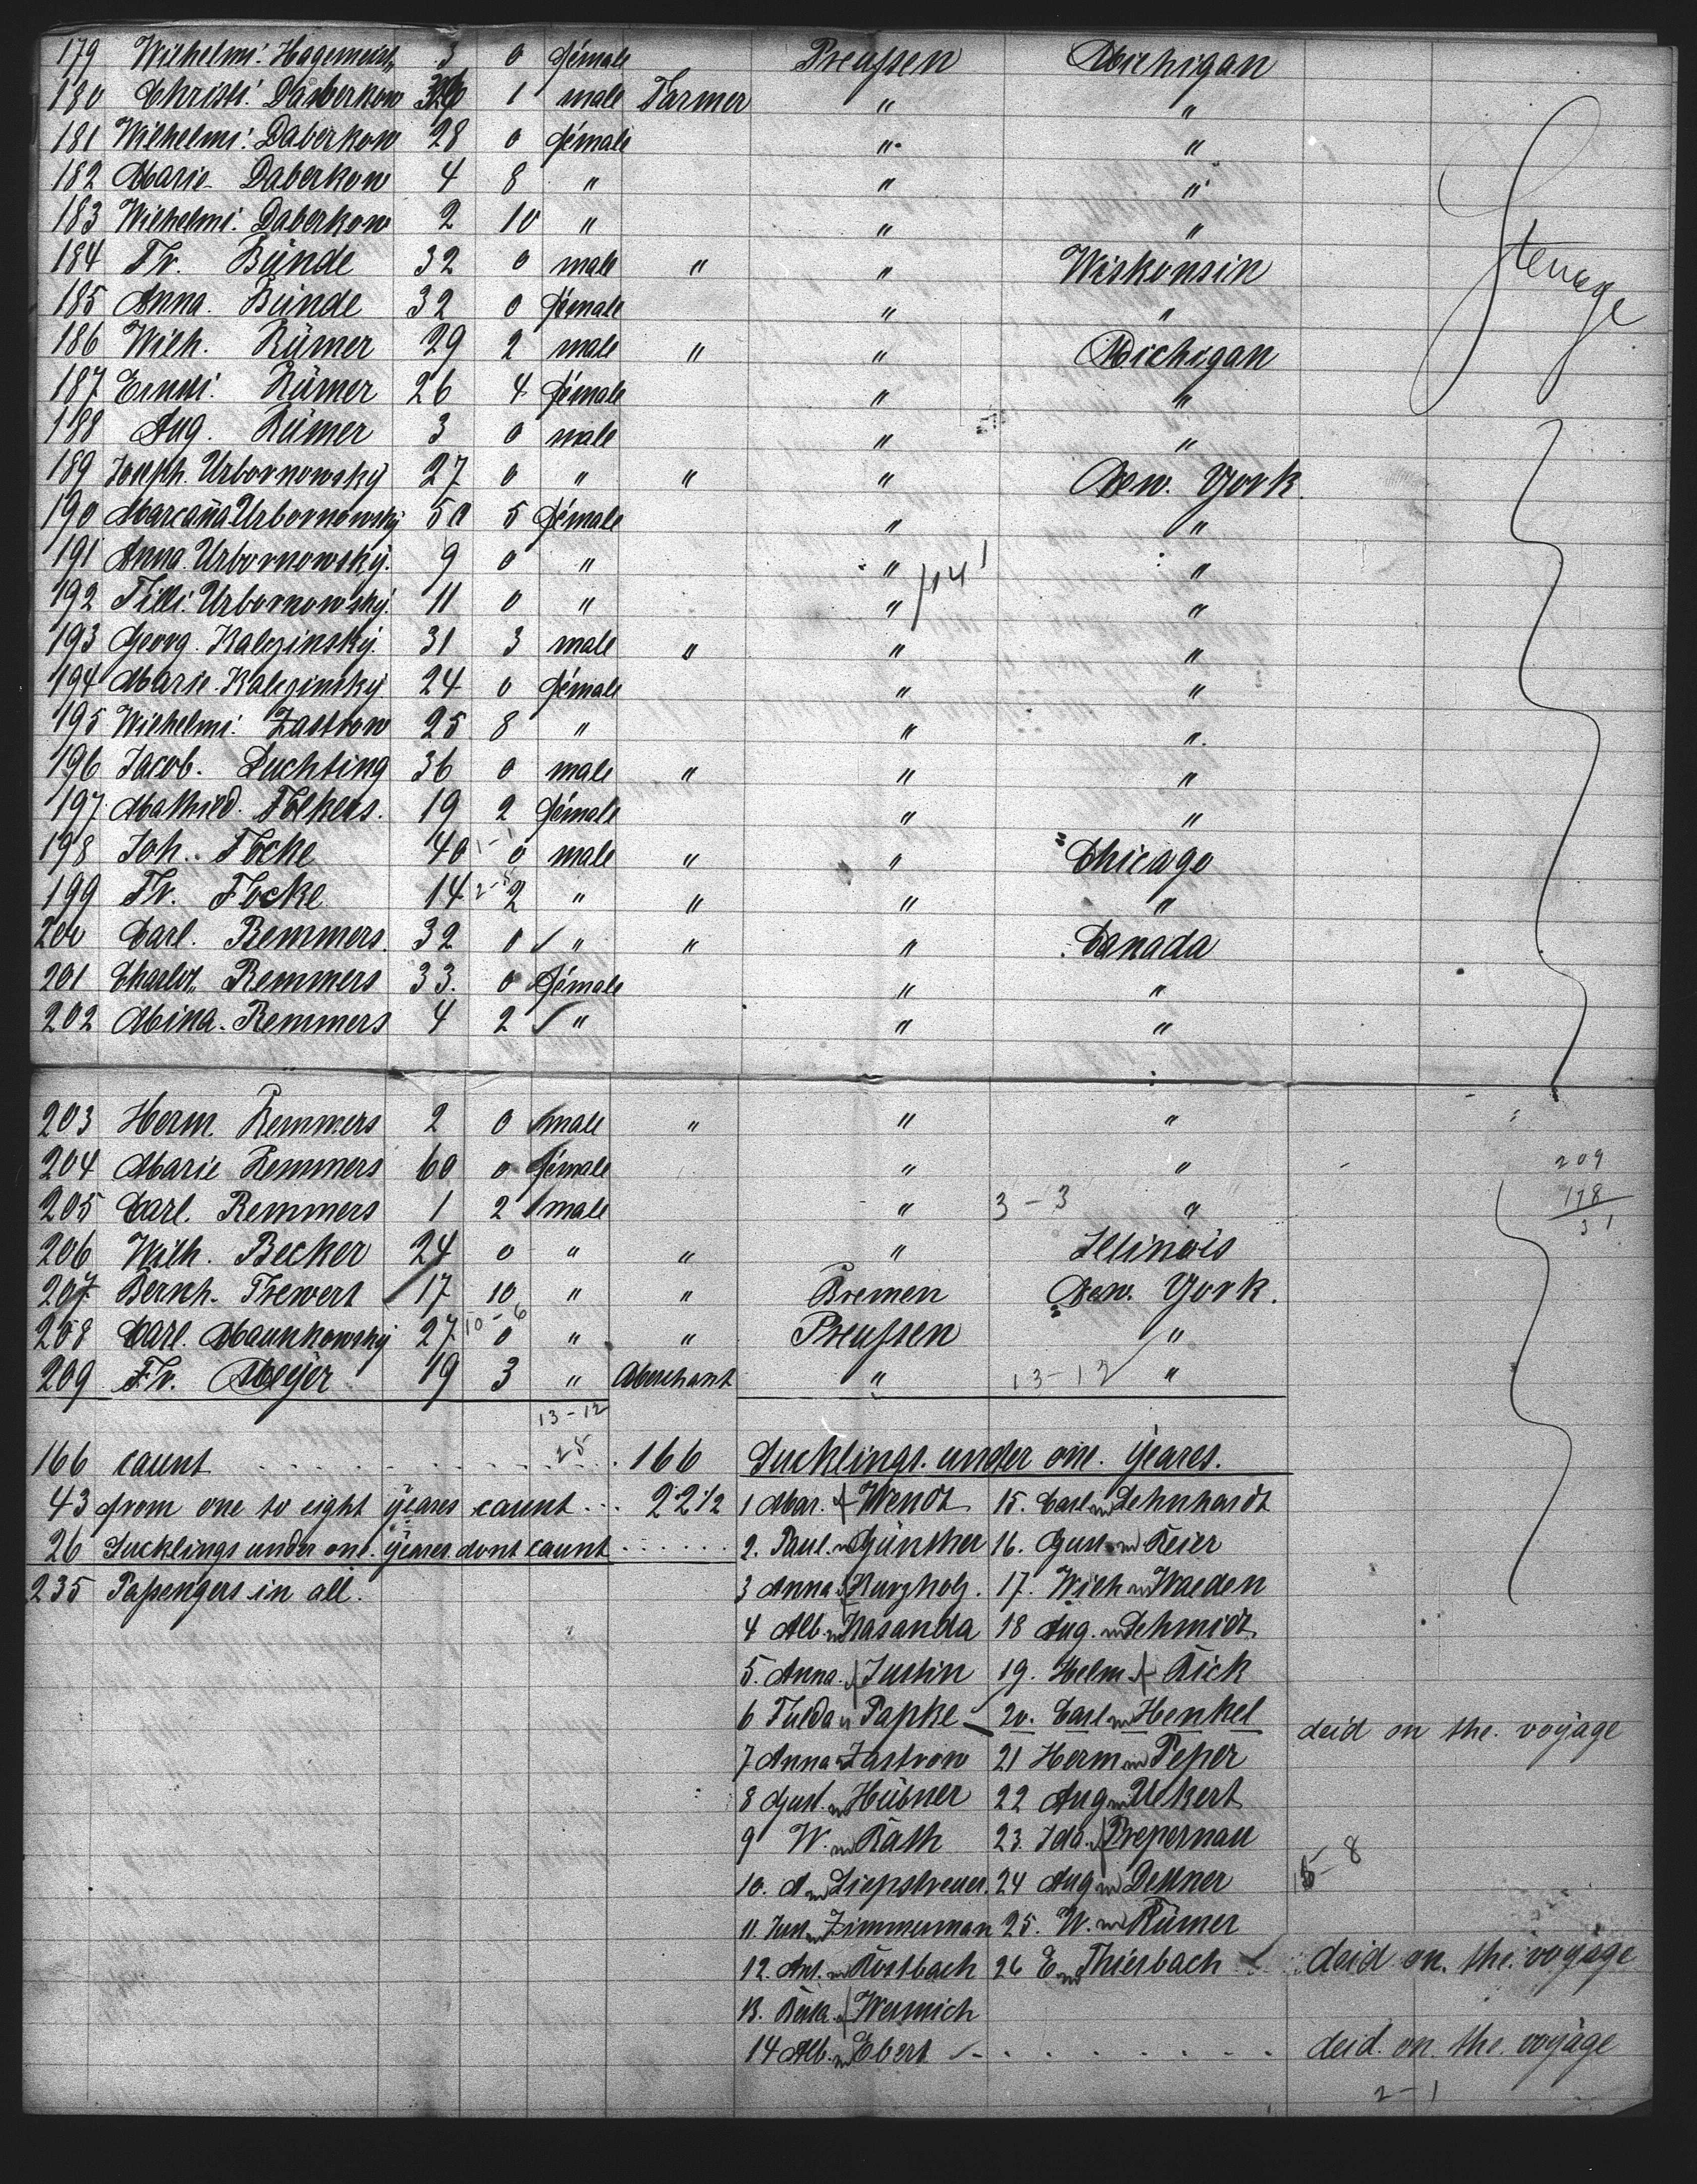 179 Wilhelmi. Hagemeist. 3 0 female Preußen Michigan
180 Christi. Daberkow 1 male Farmer " "
181 Wilhelmi. Daberkow 28 0 female " "
182 Marie Daberkow 4 8 " " "
183 Wilhelmi. Daberkow 2 10 " " "
184 Fr. Bünde 32 0 male " " Wiskonsin
185 Anna. Bünde 32 0 female " "
Steerage
186 Wilh. Rümer 29 2 male " " Michigan
187 Ernsti. Rümer 26 4 female " "
188 Aug. Rümer 3 0 male " "
189 Joseph. Urbornowsky 27 0 " " " New. York.
190 Urbornowsky 50 5 female " "
191 Anna. Urbornowsky. 9 0 " " "
192 Tilli. Urbornowsky. 11 0 " " "
193 Georg. Kalczinsky. 31 3 male " " "
194 Marie. Kalczinsky. 24 0 female " "
195 Wilhelmi. Zastrow 25 8 " " "
196 Jacob. Luchting 36 0 male " " "
197 Mathild. Folkers. 19 2 female " "
198 Joh. Focke 40 0 male " " Chicago
199 Fr. Focke 14 2 " " " "
200 Carl. Remmers. 32 0 " " " Canada
201 Charlot. Remmers 33. 0 female " "
202 Mina. Remmers 4 2 " " "
203 Herm. Remmers 2 0 male " " "
204 Marie Remmers 60 0 female " " 209
205 Carl. Remmers 1 2 male " 3-3 " 178
31
206 Wilh. Becker 24 0 " " " Illinois
207. Bernh. Trewert 17 10 " " Bremen New. York.
10-6
208 Carl. Maunkowsky 27 0 " " Preußen "
209 Fr. Meyer 19 3 " Merchant " 13-12 "
13-12
25
166 caunt . . . . . . . . . . 166 Sucklings. under one. yeares.
43 from one to eight yeares caunt . . . 22 1/2 1 Mar. f Wendt 15. Carl m Lehnhardt
26 Sucklings under one. yeares. dont caunt . . . . . . 2. Paul. m Günther 16. Gust m Reier
235 Paßengers in all. 3 Anna f Kurzholz. 17. Wilh m Waeden
4 Alb. m Kasanda 18 Aug. m Schmidt
5. Anna. f Justin 19. Helm. f Rick
6 Papke 20. Carl m Henkel deid on the. voyage
7 Anna Zastrow 21 Herm m Peper
8 Gust. m Hübner 22 Aug m Uekert
9 W. m Räth 23. Ida. f Prepernau
10. A m Liepstreuer. 24 Aug m Dellner
11. m Zimmerman 25. W. m Rümer
12. m Rostbach 26 E m Thierbach deid on. the. voyage
13. f Wernich
14 Alb. m Ebert - . . . . . . . . deid. on. the. voyage
2-1